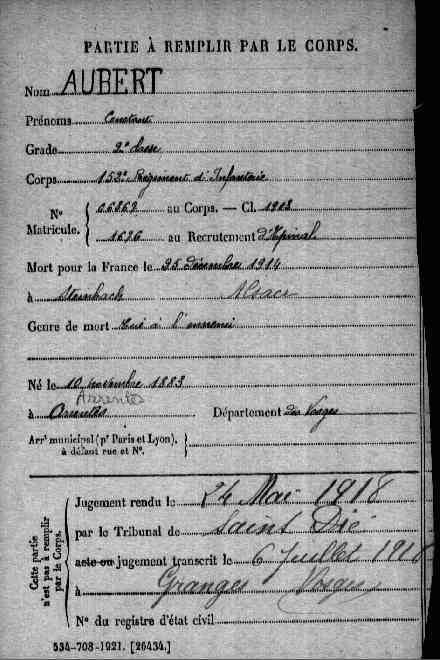 PARTIE À REMPLIR PAR LE CORPS.
Nom AUBERT
Prénoms Constant
Grade 2e classe
Corps 152e Régiment d'Infanterie
N° Matricule. { 06862 au Corps. — Cl. 1903
1676 au Recrutement d'Epinal
Mort pour la France le 25 décembre 1914
à Steinbach Alsace
Genre de mort Tué à l'ennemi
Né le 10 novembre 1883
Arrentès
à Arrentès Département des Vosges
Arrt municipal (pr Paris et Lyon), à défaut rue et N°.
Cette partie n'est pas à remplir par le Corps.
Jugement rendu le 24 Mai 1918
par le Tribunal de Saint Dié
acte ou jugement transcrit le 6 Juillet 1918
à Granges Vosges
N° du registre d'état civil
534-708-1921. [26434.]